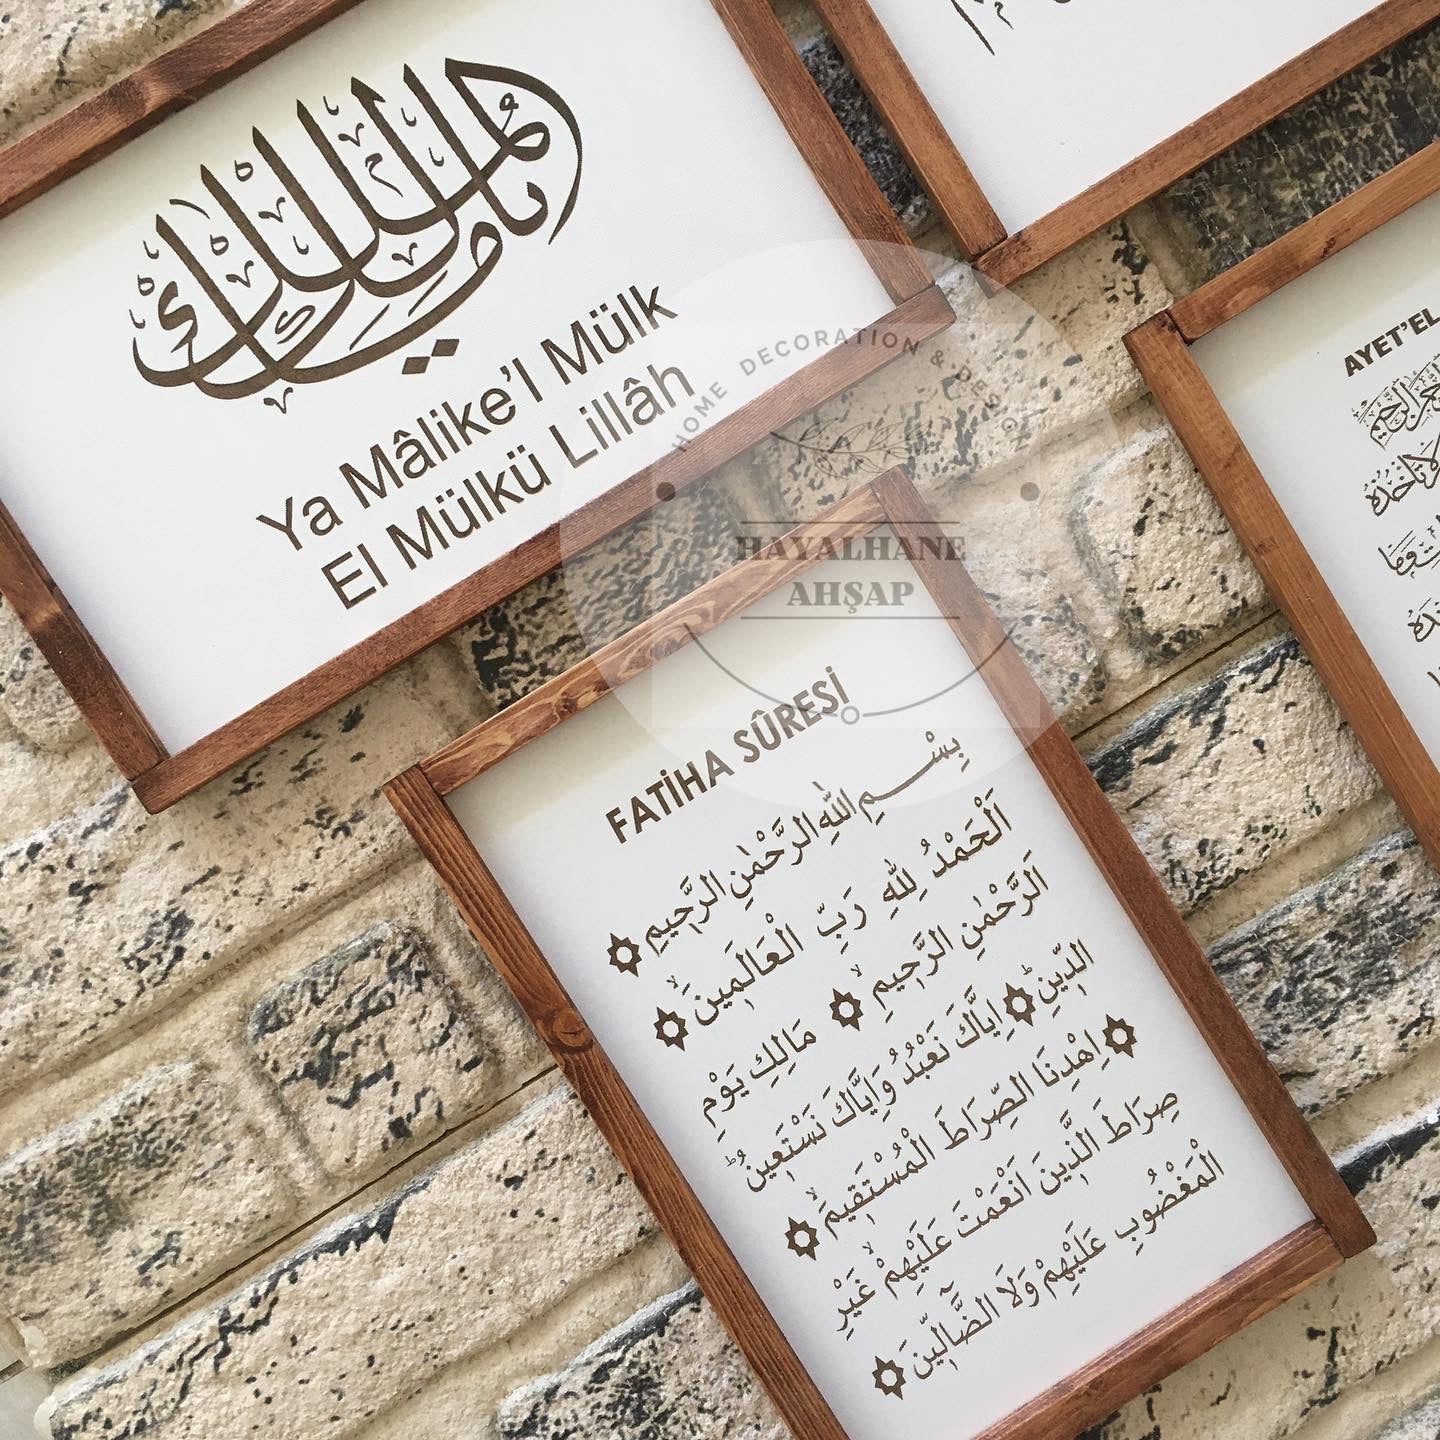 يا مالك الملك
Ya Mâlike'l Mülk
El Mülkü Lillâh
HOME DECORATION & DESIGN
HAYALHANE
AHŞAP
FATİHA SÛRESİ
بِسْمِ اللهِ الرَّحْمٰنِ الرَّحِيمِ
اَلْحَمْدُ لِلّٰهِ رَبِّ الْعَالَمِينَۙ
اَلرَّحْمٰنِ الرَّحِيمِۙ مَالِكِ يَوْمِ
الدِّينِۜ اِيَّاكَ نَعْبُدُ وَاِيَّاكَ نَسْتَعِينُۜ
اِهْدِنَا الصِّرَاطَ الْمُسْتَقِيمَۙ
صِرَاطَ الَّذِينَ اَنْعَمْتَ عَلَيْهِمْۙ غَيْرِ
الْمَغْضُوبِ عَلَيْهِمْ وَلَا الضَّٓالِّينَ
AYET'EL
الرَّحِيمِ
لَا تَأْخُذُهُ
وَمَا